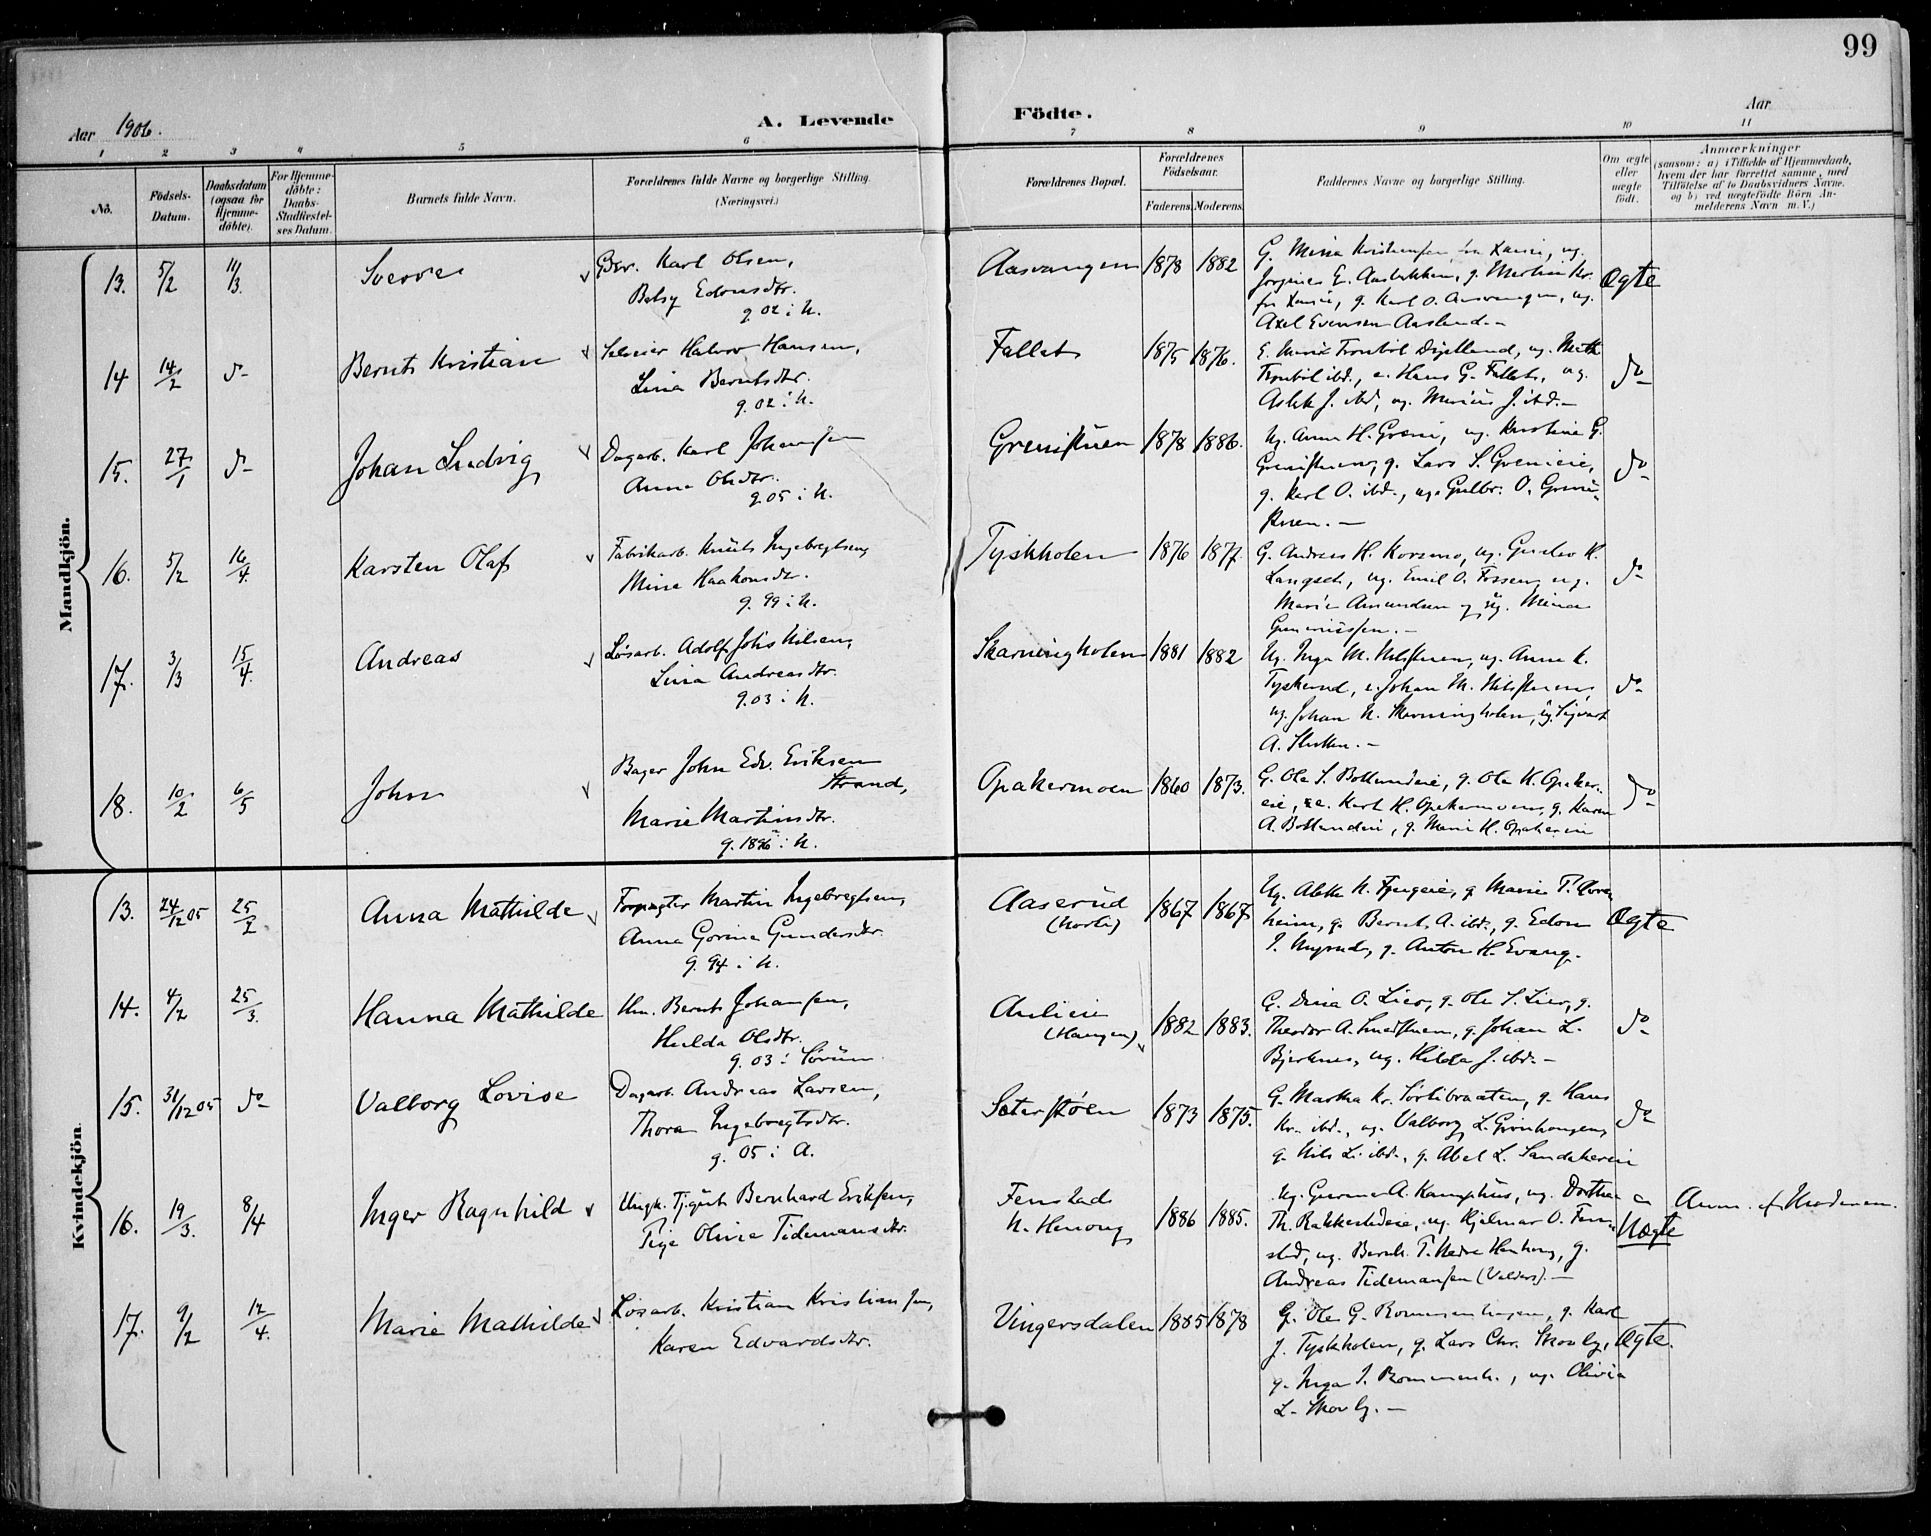 99
Aar 1906.
A. Levende
Födte.
Aar
1 2 3 4 5 6 7 8 9 10 11
No.
Födsels-
Datum.
Daabsdatum
(ogsaa for
Hjemme-
döbte).
For Hjemme-
döbte:
Daabs-
Stadfæstel-
ses Datum.
Barnets fulde Navn.
Forældrenes fulde Navne og borgerlige Stilling.
(Næringsvei.)
Forældrenes Bopæl.
Forældrenes
Födselsaar.
Faderens. Moderens.
Faddernes Navne og borgerlige Stilling.
Om ægte
eller
uægte
födt.
Anmærkninger
(saasom: a) i Tilfælde af Hjemmedaab,
hvem der har forrettet samme, med
Tilföielse af to Daabsvidners Navne.
og b) ved uægtefödte Börn An-
melderens Navn m. V.)
Mandkjön.
13. 5/2 11/3 Sverre
Gbr. Karl Olsen,
Betsy Edvinsdtr.
g. 02 i N.
Aasvangen 1878 1882
Axel Evensen Aasland.–
Ægte
14 14/2 do- Bernt Kristian
Halvor Hansen,
Lina Berntsdtr.
g. 02 i N.
Fallet 1875 1876.
E. Marie Tronböl, ug.
Tronböl ibd., e. Hans G. Fallet, ug.
Aslak J. ibd, ug. Marius J. ibd.–
do-
15. 27/1 do- Johan Ludvig
Dagarb. Karl Johansen
Anna Olsdtr.
g. 05 i N.
Grenistuen 1878 1886.
Ug. Anna H. Greni, ug. Kristine G.
Grenistuen, g. Lars S. Grenieie,
g. Karl O. ibd., ug. Gulbr. O. Greni-
stuen.–
do-
16. 5/2 16/4 Karsten Olaf
Fabrikarb. Knut Ingebregtsen
Mina Haakonsdtr.
g. 99 i N.
Tyskholen 1876 1877.
G. Andreas H. Korsmo, ug. Gustav K.
ug. Emil O. Fossen, ug.
Marie Amundsen og ug. Mina
do-
17. 3/3 15/4 Andreas
Løsarb. Adolf Johs Nilsen,
Lina Andreasdtr.
g. 03 i N.
Skarningholen 1881 1882
Ug. Inga M. Nilsstuen, ug. Anna K.
Tyskerud, e. Johan M. Nilsstuen,
ug. Johan N. Skarningholen, ug. Sigvart
do-
18. 10/2 6/5 John
Bager John Edv. Eriksen
Strand,
Marie Martinsdtr.
g. 1896 i N.
Opakermoen 1860 1873.
G. Ole S. Bollundeie, g. Ole K. Opaker-
eie, e. Karl H. Opakermoen, g. Karen
A. Bollundeie, g. Marie H. Opakereie
do-
Kvindekjön.
13. 24/12 05 25/2 Anna Mathilde
Forpagter Martin Ingebregtsen,
Anna Gorine Gundersdtr.
g. 94 i N.
Aaserud
1867 1867
heim, g. Bernt A. ibd., g. Edom
g. Anton H. Evang.
Ægte
14. 4/2 25/3. Hanna Mathilde
Hm. Bernt Johansen,
Hulda Olsdtr.
g. 03 i Sørum.
Aulieie
(Haugen) 1882 1883.
G. Dina O. Lier, g. Ole S. Lier, g.
Theodor A. Smedstuen, g. Johan L.
Bjerknes, ug. Hilda J. ibd.–
do-
15. 31/12 05 do- Valborg Lovise
Dagarb. Andreas Larsen,
Thora Ingebregtsdtr.
g. 05 i A.
Sæterstøen 1873 1875.
G. Martha Kr. Sørlibraaten, g. Hans
Kr. ibd., ug. Valborg L.
g. Nils L. ibd., g. Abel L. Sandakereie
do-
16. 19/3. 8/4 Inger Ragnhild
Ungk. Tj.gut Bernhard Eriksen,
Pige Olivie Tidemansdtr.
Fenstad
N. Henong 1886 1885.
Ug. A. Kamphus, ug. Dorthea
Th. Rakkestadeie, ug. Hjalmar O. Fen-
stad, ug. Bernh. T. Nedre Henong, g.
Andreas Tidemansen (Valders).–
Uægte
Anm. af Moderen.
17. 9/2 12/4. Marie Mathilde
Løsarb. Kristian Kristiansen,
Karen Edvardsdtr.
Vingersdalen 1885 1878
G. Ole G. g. Karl
J. Tyskholen, g. Lars Chr. Skovly,
g. Inga ug. Olivia
L. Skovly.–
Ægte.